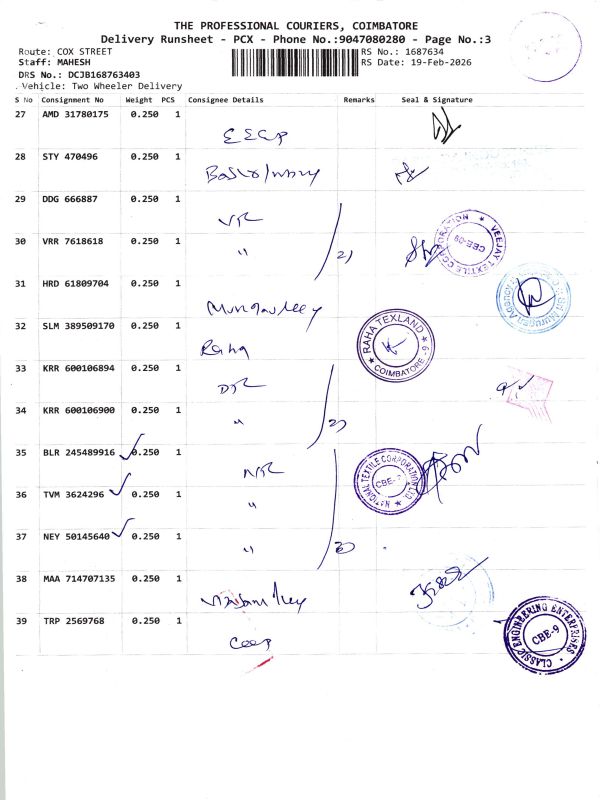 THE PROFESSIONAL COURIERS, COIMBATORE
Delivery Runsheet - PCX - Phone No.:9047080280 - Page No.:3
Route: COX STREET
Staff: MAHESH
DRS No.: DCJB168763403
Vehicle: Two Wheeler Delivery
RS No.: 1687634
RS Date: 19-Feb-2026
S No Consignment No Weight PCS Consignee Details Remarks Seal & Signature
27 AMD 31780175 0.250 1
28 STY 470496 0.250 1
29 DDG 666887 0.250 1
30 VRR 7618618 0.250 1 " 2)
VEEJAY TEXTILE CORPORATION ★ CBE-09
31 HRD 61809704 0.250 1
32 SLM 389509170 0.250 1
Raha
RAHA TEXLAND ★ COIMBATORE - 9 ★
33 KRR 600106894 0.250 1
34 KRR 600106900 0.250 1 " 2)
35 BLR 245489916 0.250 1
NATIONAL TEXTILE CORPORATION LTD ★ CBE-
36 TVM 3624296 0.250 1 "
37 NEY 50145640 0.250 1 " 3)
38 MAA 714707135 0.250 1
39 TRP 2569768 0.250 1
CLASSIC ENGINEERING ENTERPRISES ★ CBE-9